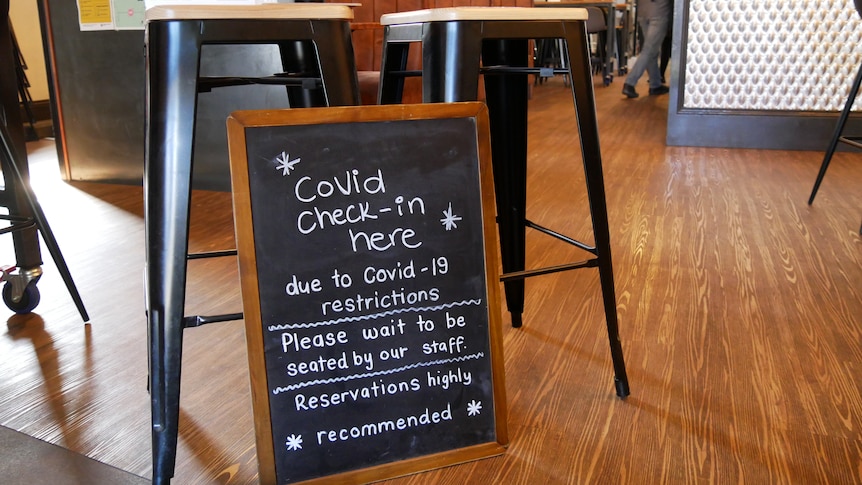 Covid
Check-in
here
due to Covid-19
restrictions
Please wait to be
seated by our staff.
Reservations highly
recommended